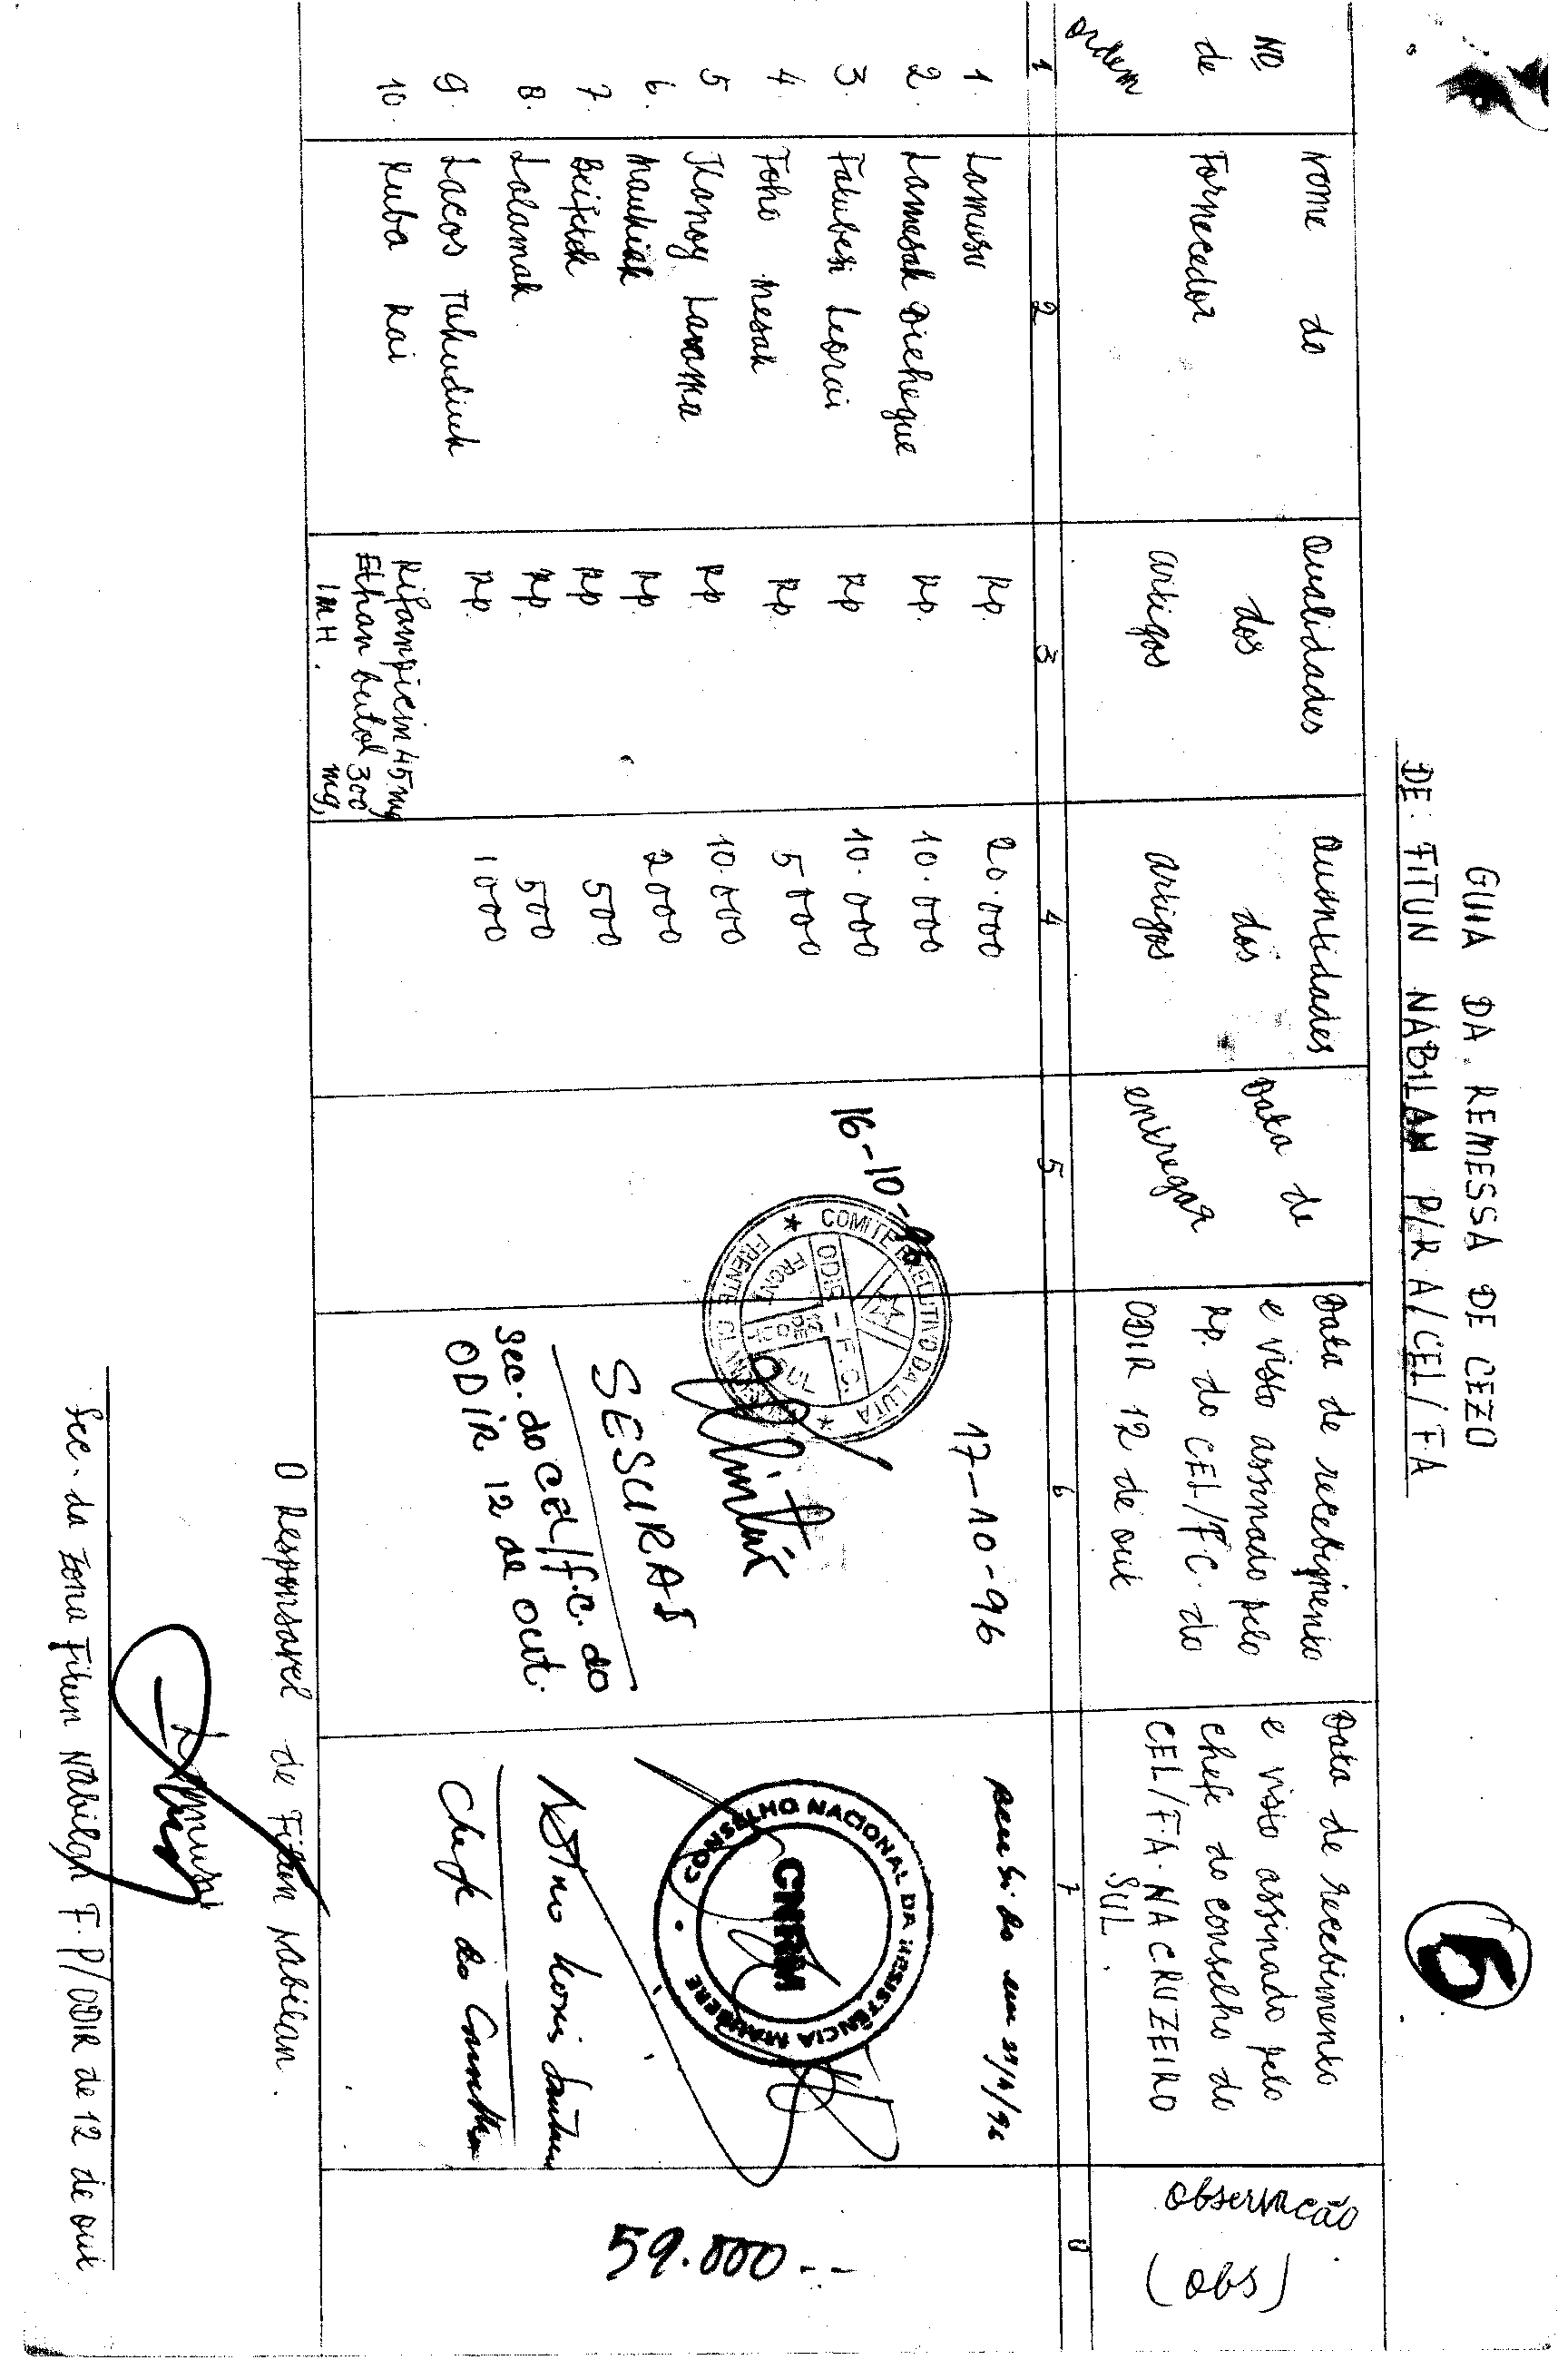 GUIA DA REMESSA DE CEZO
DE: FITUN NABILAN P/R A/CEL/FA
5
No. de ordem
Nome do Fornecedor
Qualidades dos artigos
Quantidades dos artigos
Data de entregar
Data de recebimento e visto assinado pelo Rp. do CEL/FC. do ODIR 12 de out
Data de recebimento e visto assinado pelo chefe do conselho do CEL/FA. NA CRUZEIRO SUL.
Observacão (obs)
1 2 3 4 5 6 7 8
1. Lamusu Rp. 20.000
2. Lamesak Diehegue Rp. 10.000
3. Falubesi Leorai Rp 10.000
4. Foho Mesak Rp. 5000
5 Thonoy Laroma Rp 10.000
6. Maukiak Rp. 2000
7. Beifetok Rp 500
8. Lalamak Rp. 500
9. Lacos Tahudiuk Rp. 1000
10. Ruba Rai Rifampicin 45 mg
Ethan butol 300 mg,
IMH.
16-10-96
17-10-96
COMITE EXECUTIVO DA LUTA
FRENTE CLANDESTINA
ODIR - F.C.
FRONT SUL
12 DE OUT
SESURAI
Sec. do CEL/F.C. do
ODIR 12 de out.
Recebido em
CONSELHO NACIONAL DA RESISTÊNCIA MAUBERE
CNRM
Chefe do Conselho
59.000--
O Responsavel de Fitun Nabilan.
Lamusu
Sec. da Zona Fitun Nabilan F.P/ODIR de 12 de out